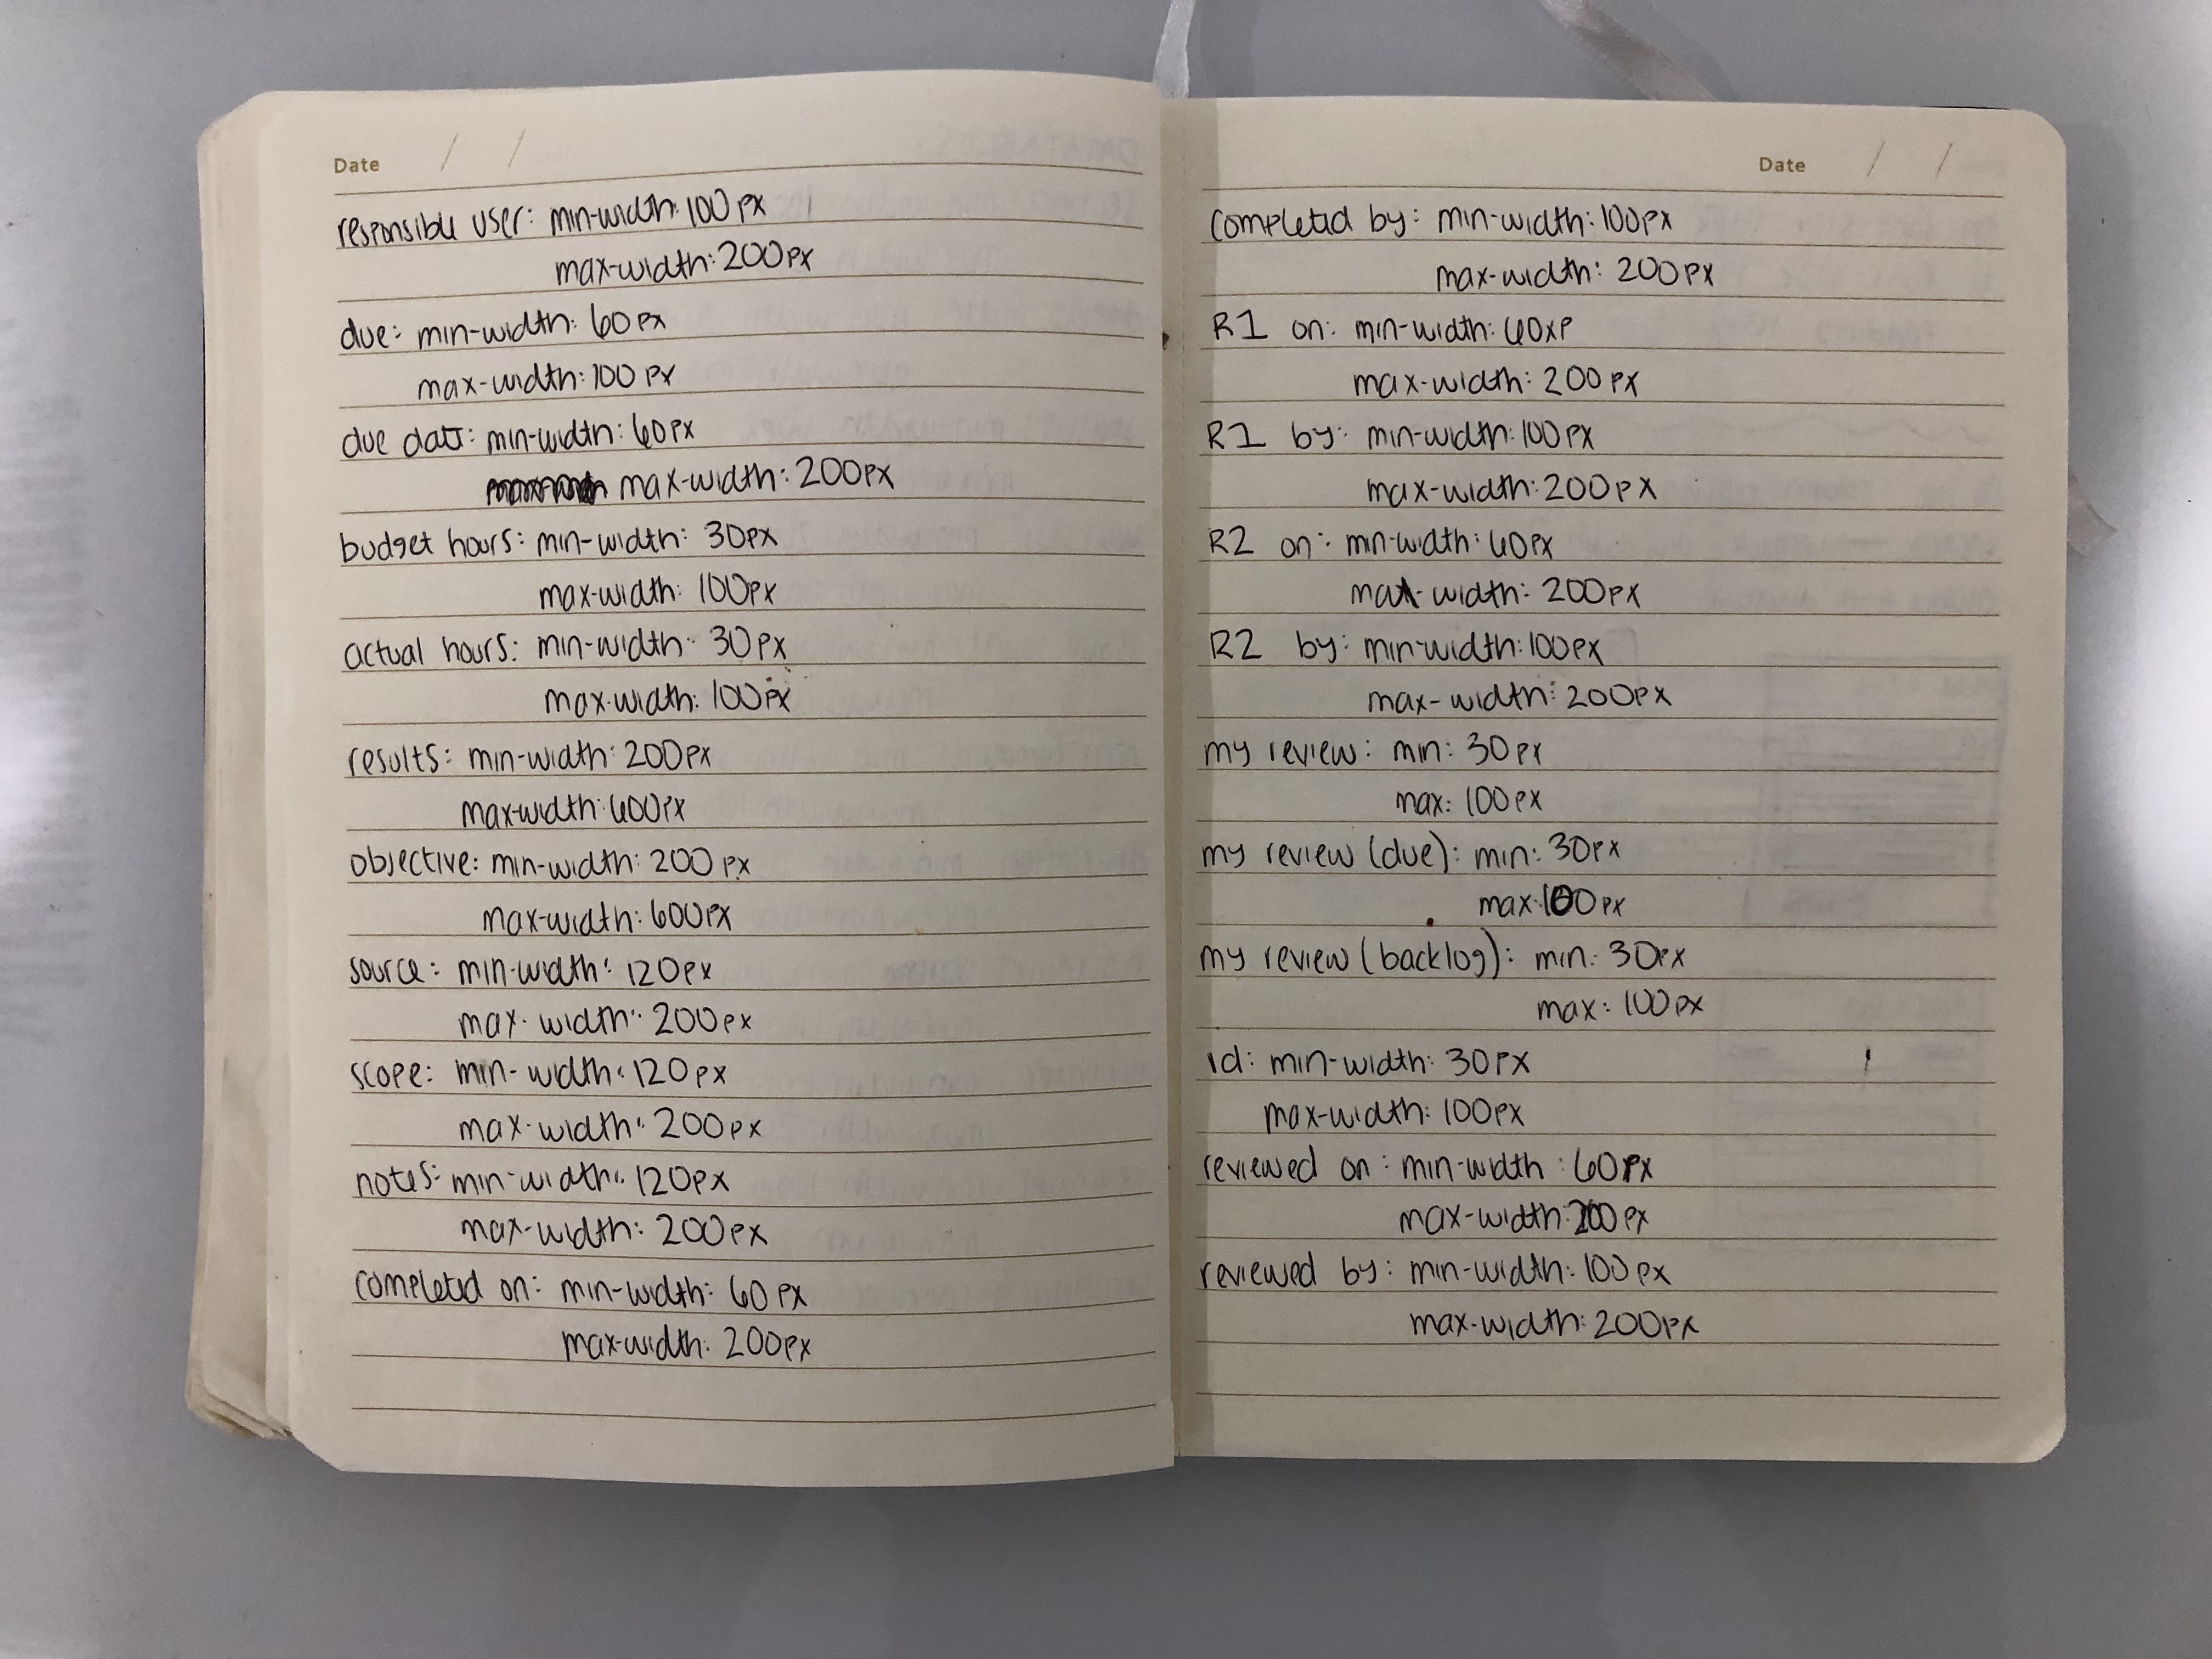 Date / /
responsible user: min-width: 100px
max-width: 200px
due: min-width: 60px
max-width: 100px
due date: min-width: 60px
max-width: 200px
budget hours: min-width: 30px
max-width: 100px
actual hours: min-width: 30px
max-width: 100px
results: min-width: 200px
max-width: 600px
objective: min-width: 200px
max-width: 600px
source: min-width: 120px
max-width: 200px
scope: min-width: 120px
max-width: 200px
notes: min-width: 120px
max-width: 200px
completed on: min-width: 60px
max-width: 200px
Date / /
completed by: min-width: 100px
max-width: 200px
R1 on: min-width: 60xp
max-width: 200px
R1 by: min-width: 100px
max-width: 200px
R2 on: min-width: 60px
max-width: 200px
R2 by: min-width: 100px
max-width: 200px
my review: min: 30px
max: 100px
my review (due): min: 30px
max: 100px
my review (backlog): min: 30px
max: 100px
id: min-width: 30px
max-width: 100px
reviewed on: min-width: 60px
max-width: 200px
reviewed by: min-width: 100px
max-width: 200px